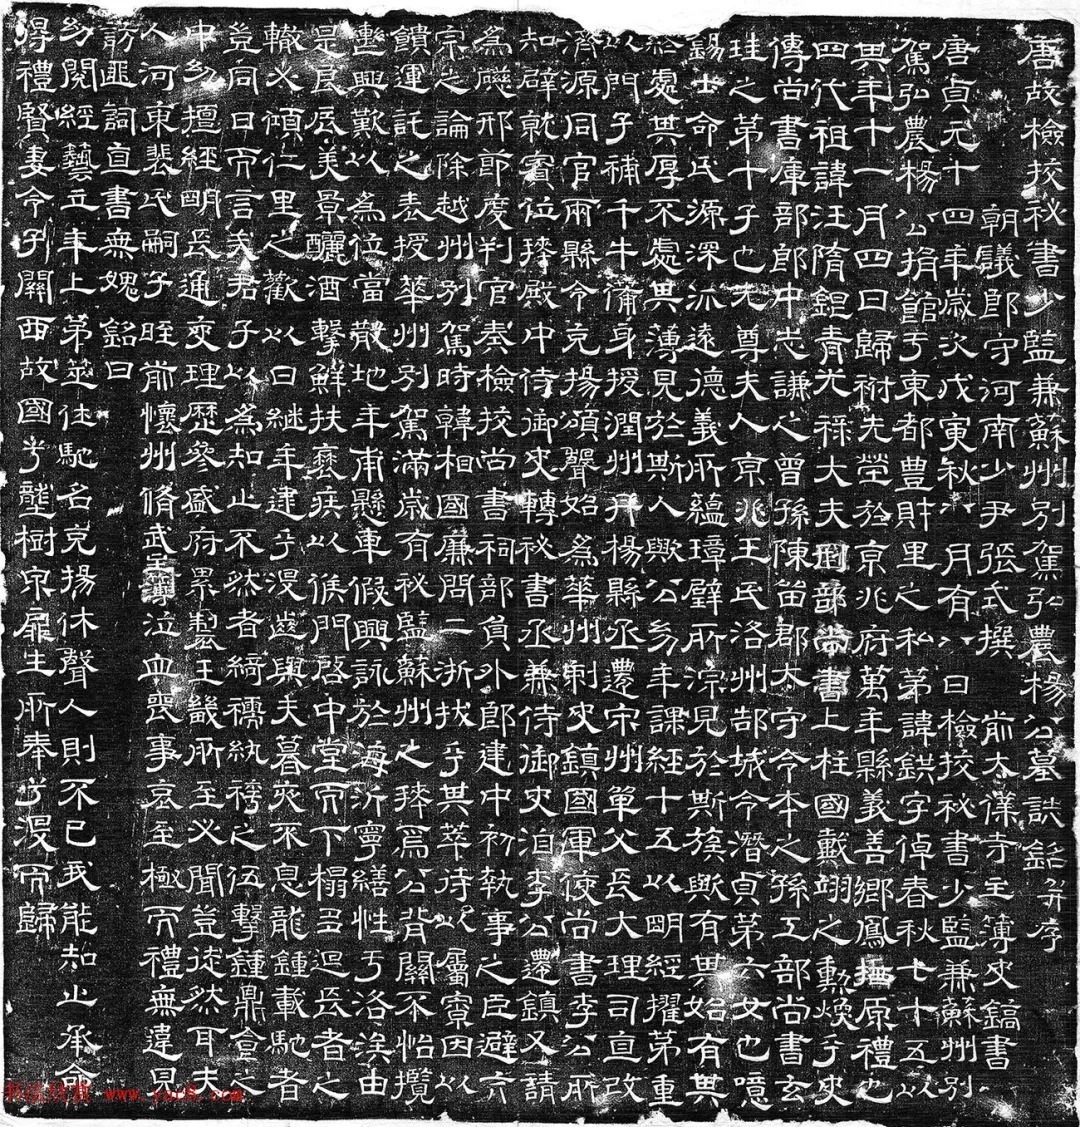 唐故檢校秘書少監兼蘇州別駕弘農楊公墓誌銘并序
朝議郎守河南少尹張式撰 前太僕寺主簿史鎬書
唐貞元十四年歲次戊寅秋八月有八日檢校秘書少監兼蘇州別
駕弘農楊公捐館于東都豊財里之私第諱鉷字倬春秋七十五以
其年十一月四日歸祔先塋於京兆府萬年縣義善鄉鳳栖原禮也
四代祖諱汪隋銀青光祿大夫國部尚書上柱國戴翊之勳煥乎史
傳尚書庫部郎中志謙之曾孫陳留郡太守令本之孫工部尚書玄
珪之第十子也先尊夫人京兆王氏洛州郜城令潛貞第六女也噫
錫士命氏源深派遠德義所蘊璋璧所淙見於斯族歟有其始有其
終處其厚不處其薄見於斯人歟公幼年課經十五以明經擢第重
以門子補千牛備身授潤州丹楊縣丞遷宋州單父丞大理司直改
濟源同官兩縣令克揚頌聲始為華州刺史鎮國軍使尚書李公所
知辟就賓位拜殿中侍御史轉祕書丞兼侍御史洎李公遷鎮又請
為晉邢節度判官奏檢校尚書祠部員外郎建中初執事之臣避六
宗之論除越州別駕時韓相國廉問二浙拔乎其萃待以屬寮因以
饋運託之表授華州別駕滿歲有祕監蘇州之拜焉公背關不怡攬
轡興歎以為位當散地年甫懸車假興詠於海沂寧繕性于洛涘由
是良辰美景釃酒擊鮮扶羸疾以俟門啓中堂而下榻多迴長者之
轍必傾仁里之歡以日繼年逮乎浸遊與夫暮夾不息龍鍾載馳者
豈同日而言哉君子以為知止不然者綺襦紈袴之伍擊鍾鼎食之
中幼擅經明長通吏理歷參盛府累製王畿所至必聞豈徒然耳夫
人河東裴氏嗣子晊前懷州脩武主簿泣血喪事哀至極而禮無違見
訪匪詞直書無媿 銘曰
幼閱經藝立年上第筮仕馳名克揚休聲人則不已我能知止承余
得禮賢妻令子關西故國兮壟樹泉扉生所奉兮漫而歸
书法欣赏 www.yac8.com